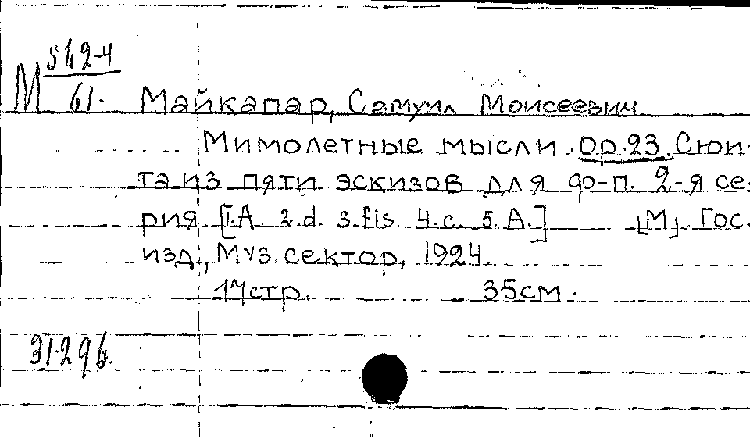 М 542-4
61.
Майкапар, Самуил Моисеевич
Мимолетные мысли. op.23. Сюи-
та из пяти эскизов для фо-п. 2-я се-
рия [1.A 2.d. 3.fis 4.c. 5.A.] [М] Гос.
изд., Муз. сектор, 1924
17стр. 35см.
31296